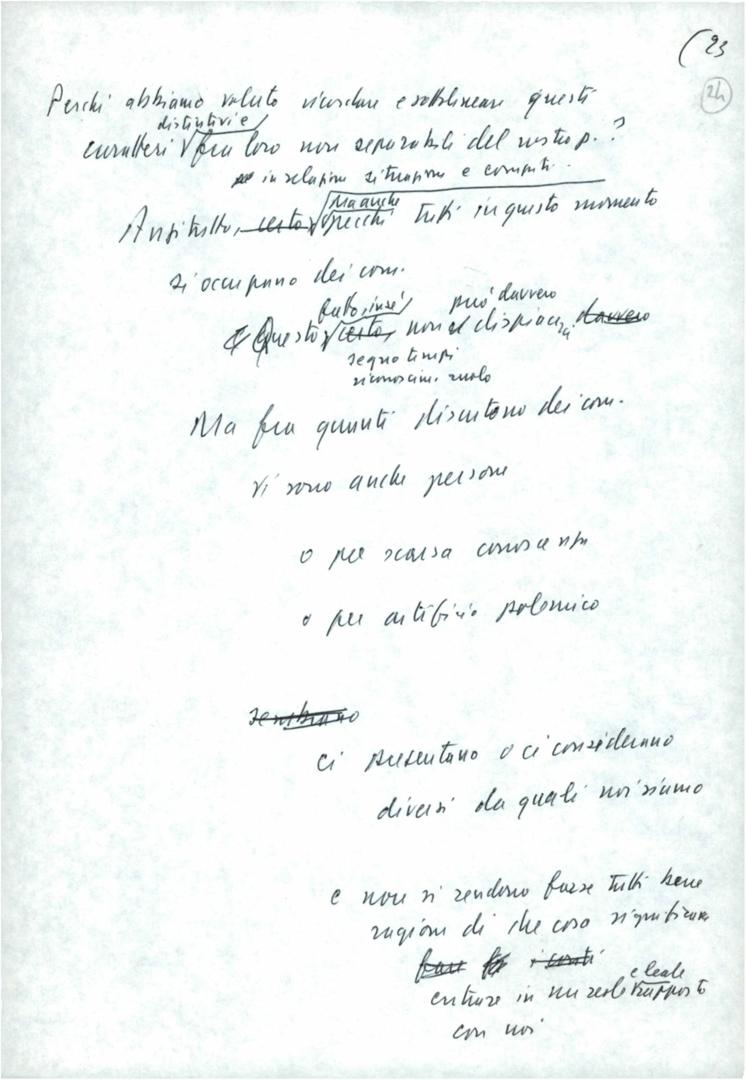 (23
24
Perché abbiamo voluto ricordare e sottolineare questi
distintivi e
caratteri fra loro non separabili del nostro p. ?
in relazione situazione e compiti.
Ma anche
Anzitutto, certo, perché tutti in questo momento
si occupano dei com.
fatto, in sé può davvero
Questo certo, non dispiacerci davvero
segno tempi
riconoscim. ruolo
Ma fra quanti discutono dei com.
vi sono anche persone
o per scarsa conoscenza
o per artificio polemico
sembrano
ci presentano o ci considerano
diversi da quali noi siamo
e non si rendono forse tutti bene
ragione di che cosa significhi
fare i conti
e leale
entrare in un reale rapporto
con noi